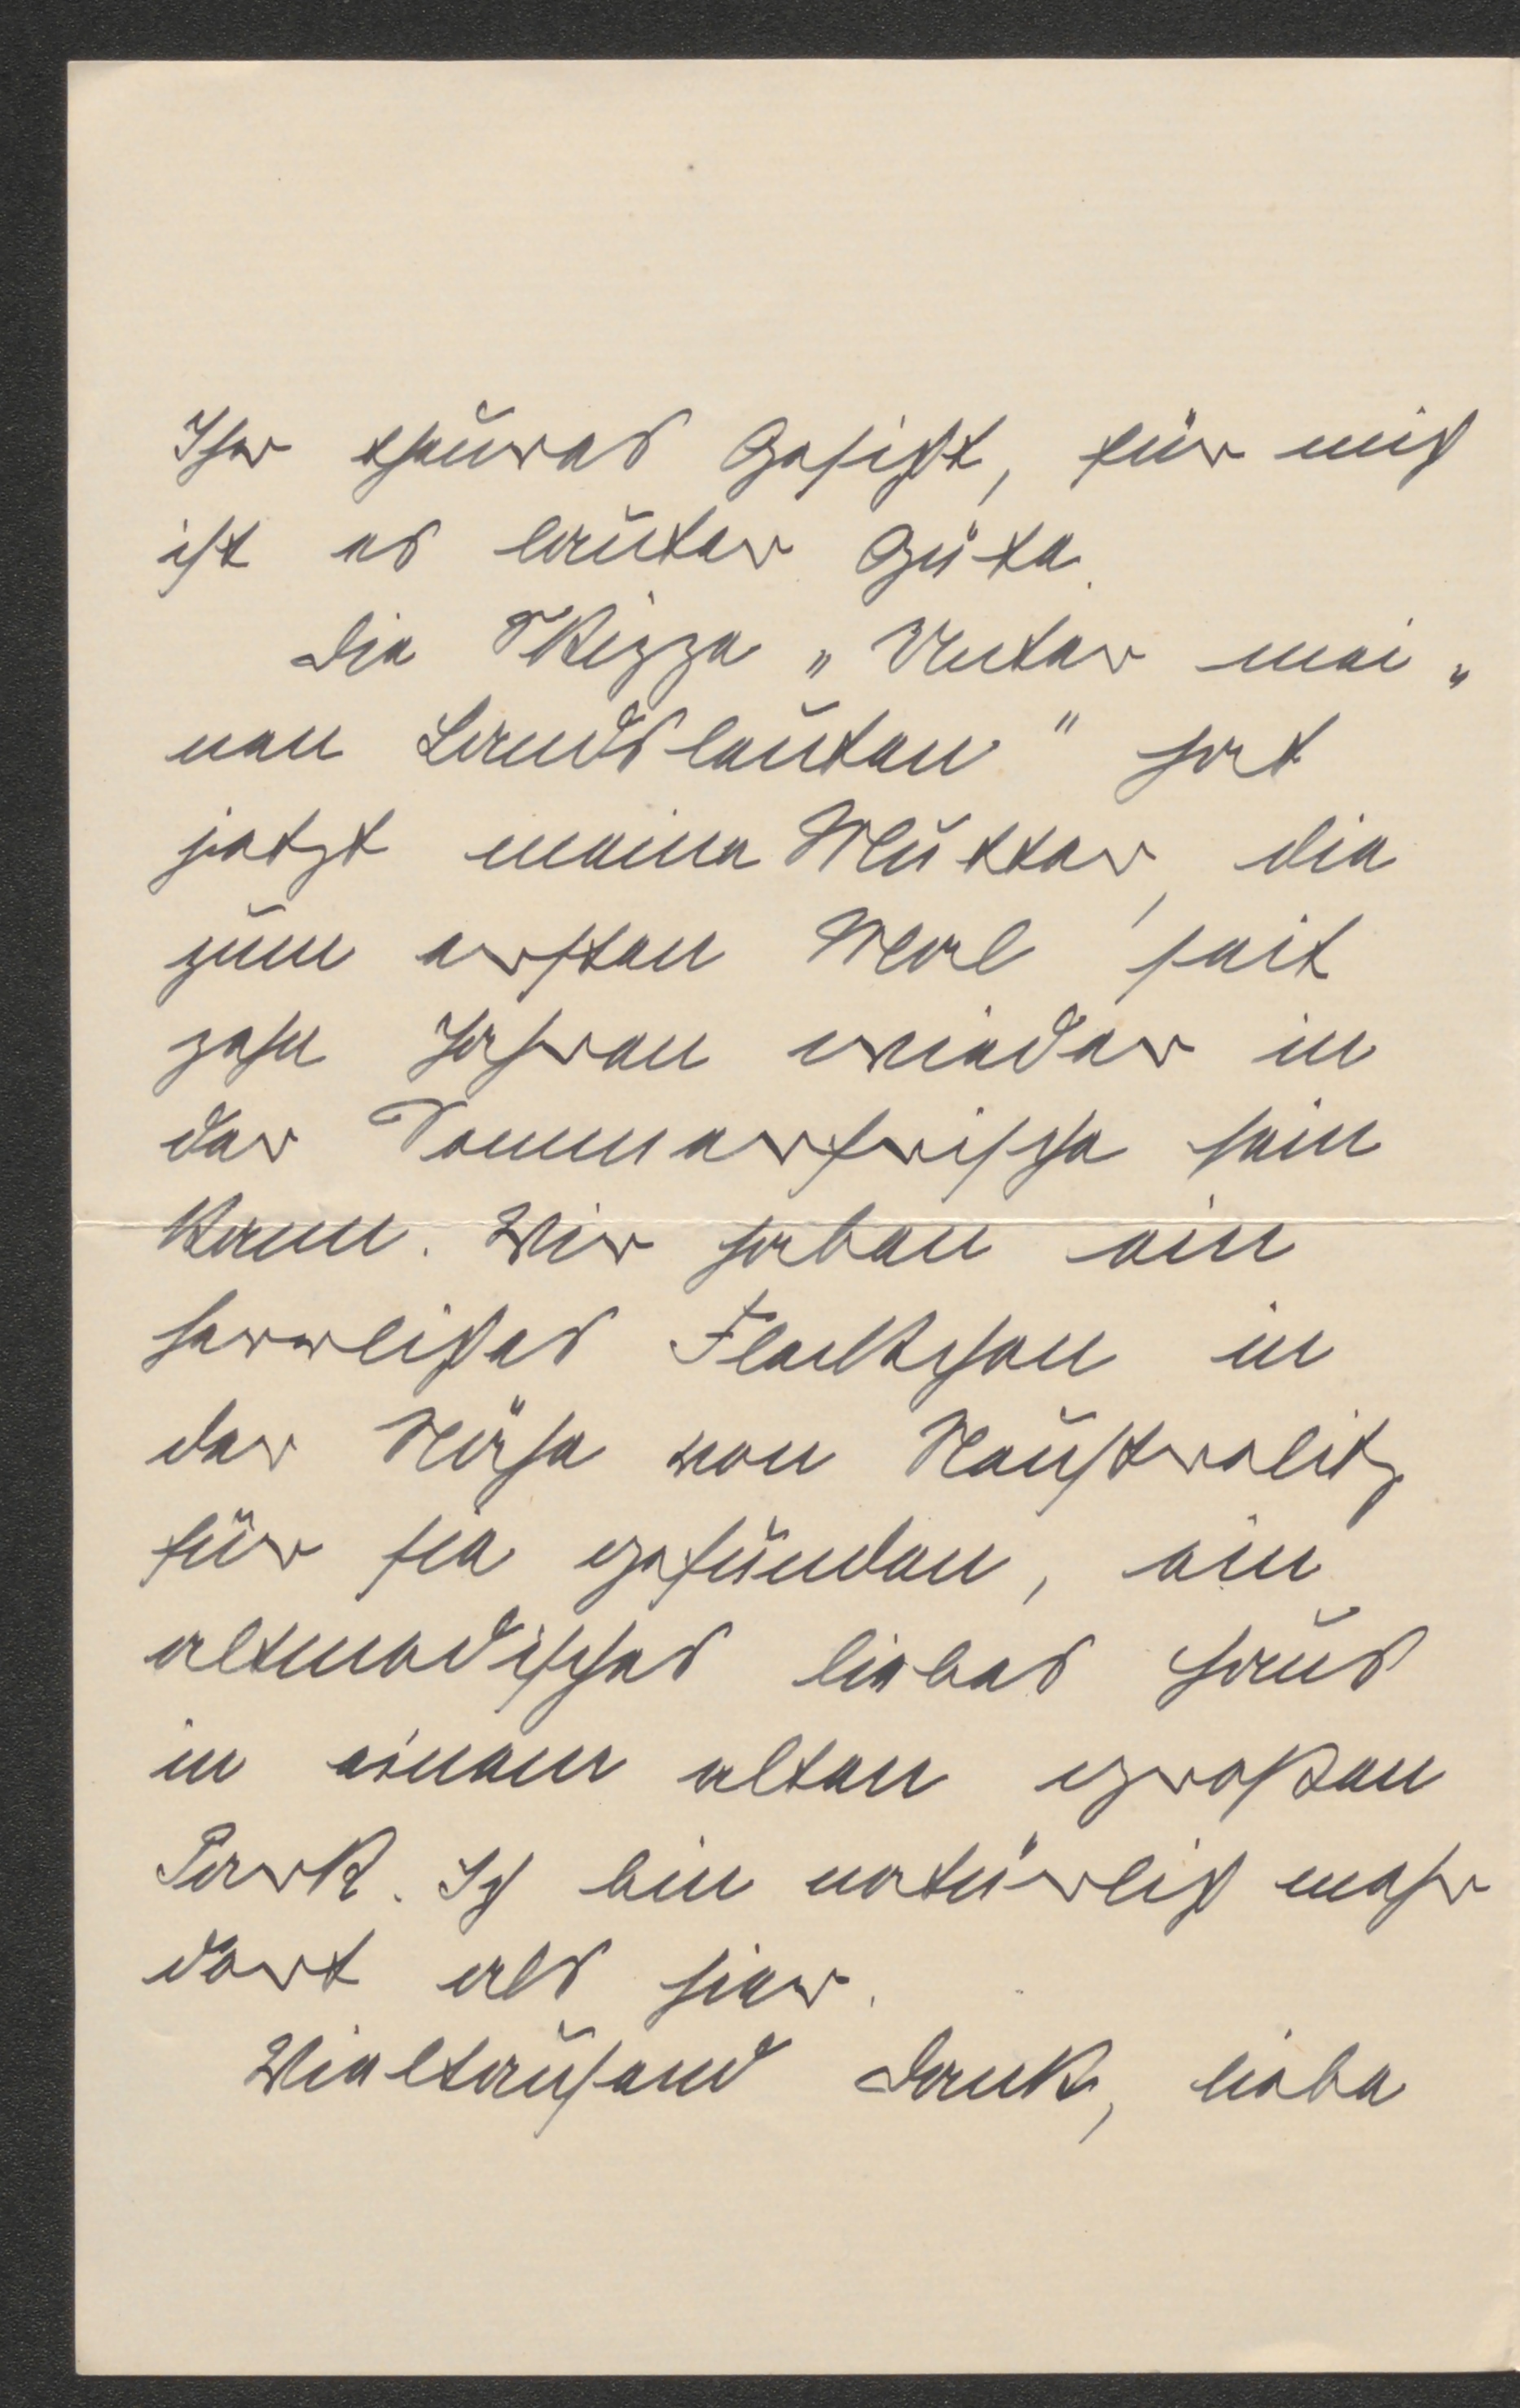 Ihr theures Gesicht, für mich
ist es lauter Güte.
Die Skizze „Unter mei„
nen Landsleuten" hat
jetzt meine Mutter, die
zum ersten Mal seit
zehn Jahren wieder in
der Sommerfrische sein
kann. Wir haben ein
herrliches Fleckchen in
der Nähe von Neustrelitz
für sie gefunden, ein
altmodisches liebes Haus
in einem alten großen
Park. Ich bin natürlich mehr
dort als hier.
Vieltausend Dank, liebe